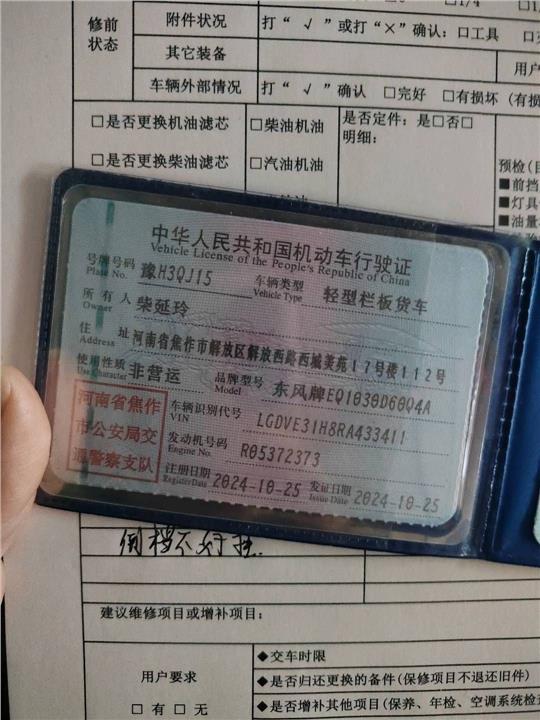 修前
状态
附件状况
打“ √ ”或打“×”确认：□工具
其它装备
用户
车辆外部情况
打“ √ ”确认 □完好 □有损坏（有损
□是否更换机油滤芯
□柴油机油
是否定件：是□否□
明细：
□是否更换柴油滤芯
□汽油机油
预检（目
■前挡
■灯具
■油量
中华人民共和国机动车行驶证
Vehicle License of the People's Republic of China
号牌号码 豫H3QJ15 车辆类型 轻型栏板货车
Plate No. Vehicle Type
所有人 柴延玲
Owner
住 址 河南省焦作市解放区解放西路西城美苑17号楼112号
Address
使用性质 非营运 品牌型号 东风牌EQ1030D60Q4A
Use Character Model
河南省焦作
市公安局交
通警察支队
车辆识别代号 LGDVE31H8RA433411
VIN
发动机号码 R05372373
Engine No.
注册日期 2024-10-25 发证日期 2024-10-25
Register Date Issue Date
倒档不好挂
建议维修项目或增补项目：
用户要求
□有 □无
◆交车时限
◆是否归还更换的备件（保修项目不退还旧件）
◆是否增补其他项目（保养、年检、空调系统检